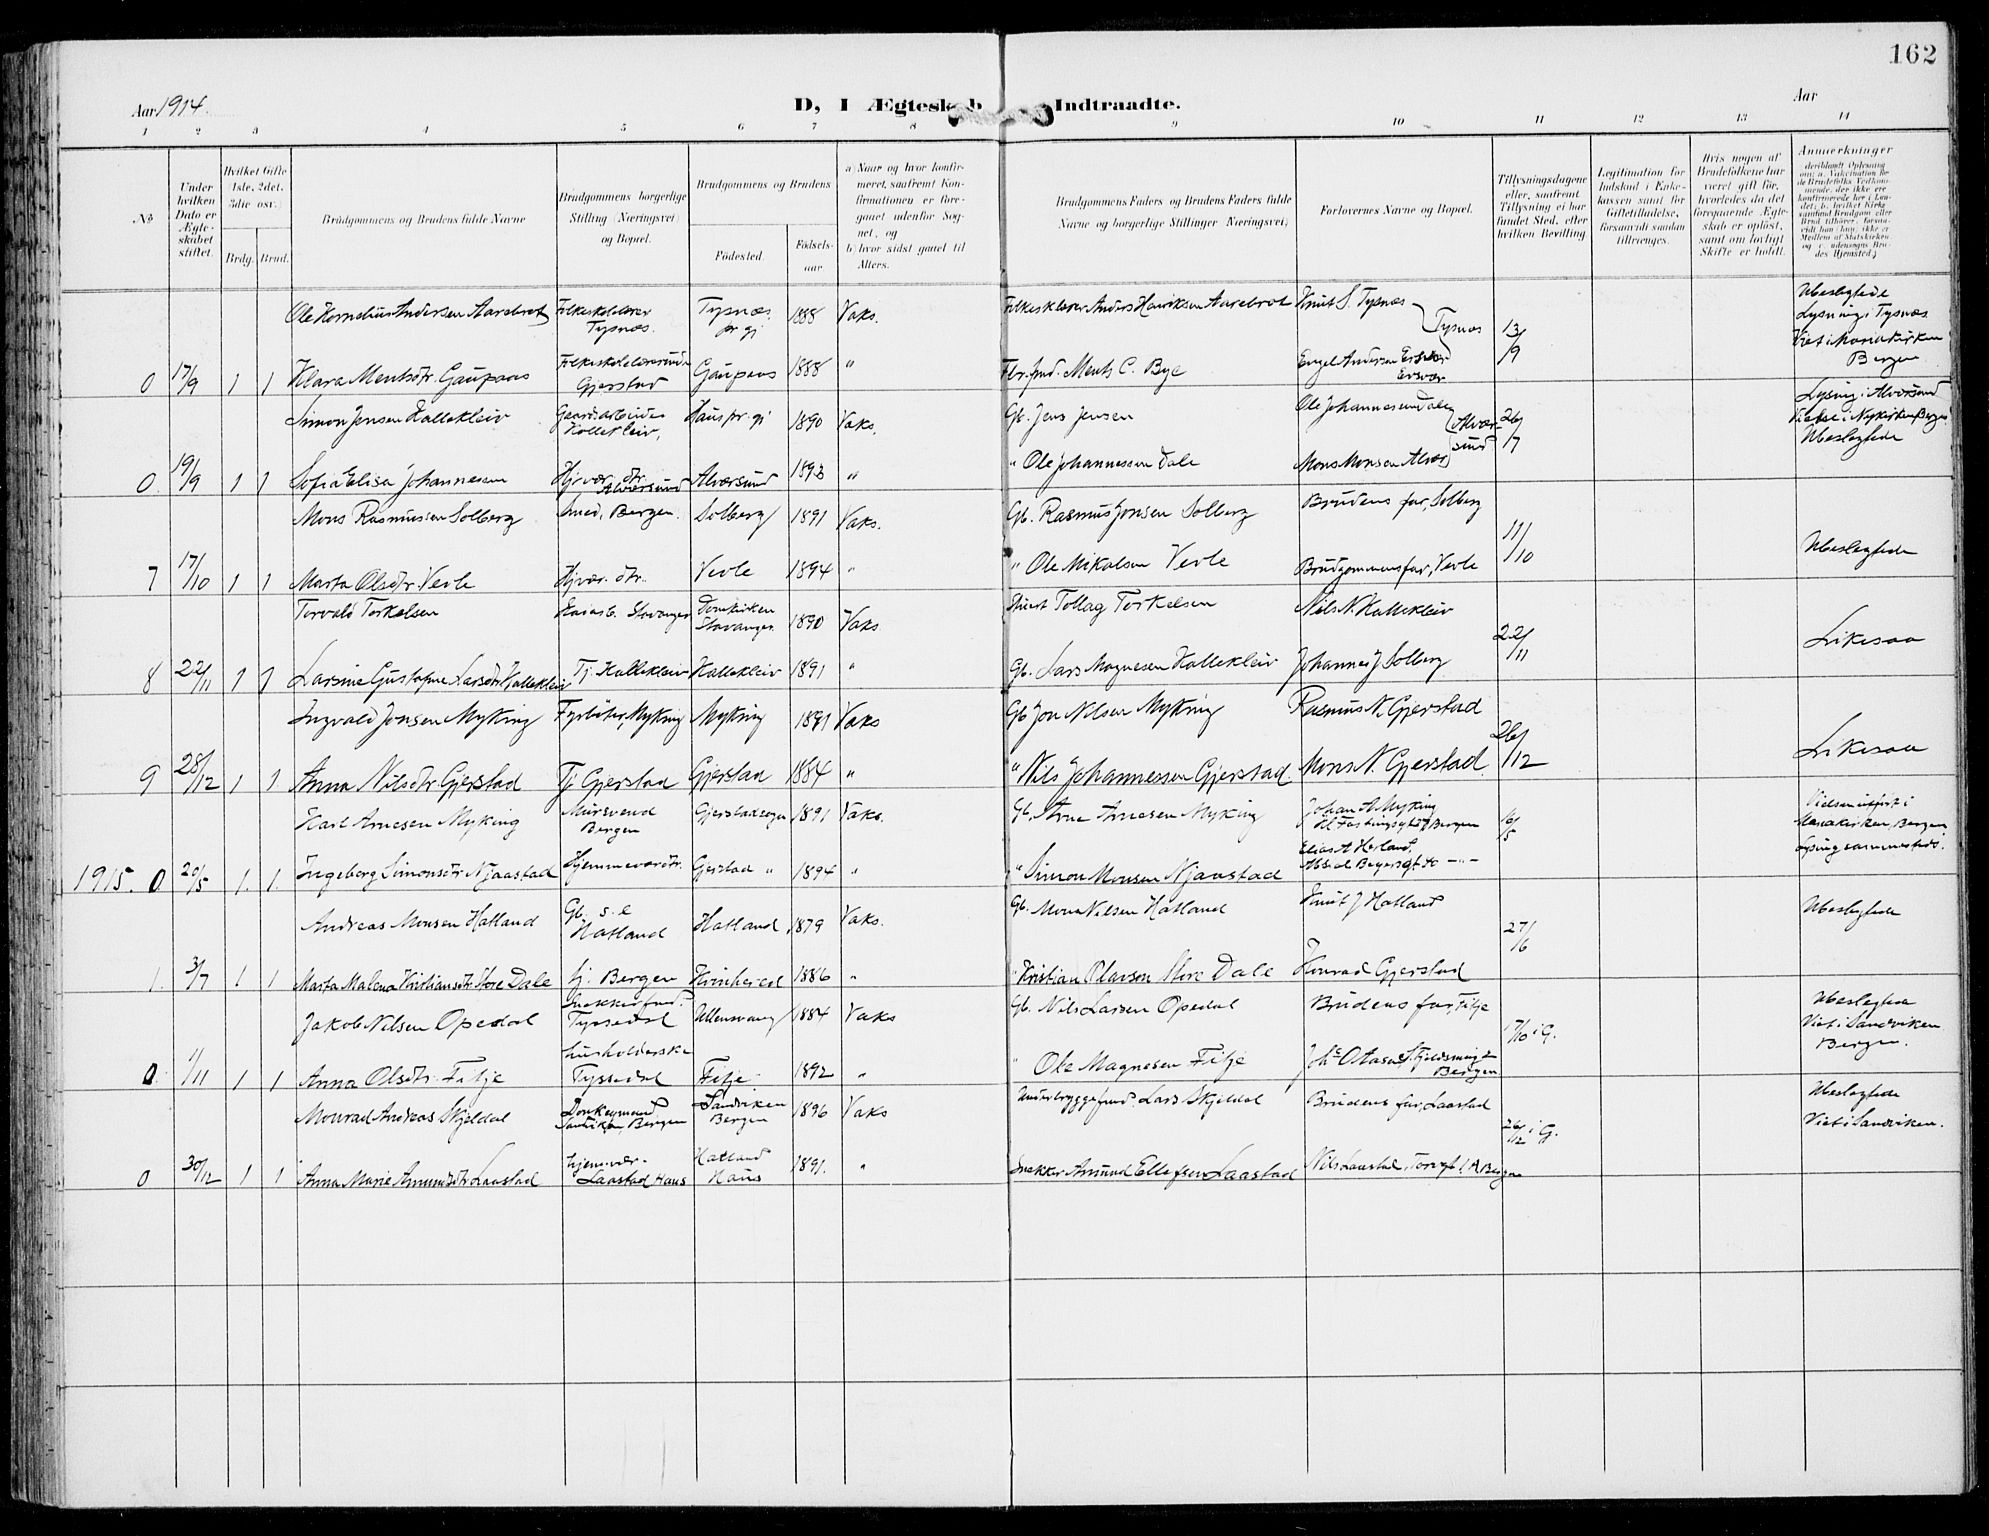 162
Aar 1914.
D, I Ægteskab Indtraadte.
Aar
1 2 3 4 5 6 7 8 9 10 11 12 13 14
No
Under hvilken Dato er Ægteskabet stiftet.
Hvilket Gifte 1ste, 2det, 3die osv.
Brdg. Brud.
Brudgommens og Brudens fulde Navne
Brudgommens borgerlige Stilling (Næringsvei) og Bopæl.
Brudgommens og Brudens
Fødested
Fødselsaar
a) Naar og hvor konfirmeret, saafremt Konfirmationen er foregaaet udenfor Sognet, og
b) hvor sidst gaaet til Alters.
Brudgommens Faders og Brudens Faders fulde Navne og borgerlige Stillinger (Næringsvei)
Forlovernes Navne og Bopæl.
Tillysningsdagene eller, saafremt Tillysning ei har fundet Sted, efter hvilken Bevilling
Legitimation for Indskud i Enkekassen samt for Giftetilladelse, forsaavidt saadan tiltrænges.
Hvis nogen af Brudefolkene har været gift før, hvorledes da det foregaaende Ægteskab er opløst, samt om lovligt Skifte er holdt.
Anmærkninger
Ole Kornelius Andersen Aarebrot Folkeskolelærer Tysnæs. Tysnæs pr.gj 1888 Vaks. Folkeskolelærer Anders Henriksen Aarebrot Knut S. Tysnæs Tysnæs 13/9 Ubeslegtede Lysning i Tysnæs Viet i Mariakirken Bergen
0 17/9 1 1 Klara Mentsdtr. Gaupaas Folkeskolelærerinde Gjerstad Gaupaas 1888 " Fbr. fmd. Ments C. Bye Engel Andersen
Simon Jensen Kallekleiv Gaardsarbeider Kallekleiv, Haus pr. gj 1890 Vaks. Gb. Jens Jensen Ole Johannessen Dale Alværsund 26/7 Lysing i Alversund Vielse i Nykirken Bergen Ubeslegtede
0. 19/9 1 1 Sofia Elisa Johannessen Hjvær. dtr. Alversund Alversund 1893 " " Ole Johannessen Dale Mons Monsen Alvær
Mons Rasmussen Solberg Smed, Bergen. Solberg 1891 Vaks. Gb. Rasmus Jonsen Solberg Brudens far, Solberg 11/10 Ubeslegtede
7 17/10 1 1 Marta Olsdtr. Vevle Hjvær. dtr. Vevle 1894 " " Ole Nikolsen Vevle Brudgommens far, Vevle
Torvald Torkelsen Stavanger Domkirken Stavanger 1890 Vaks. Tollag Torkelsen Nils N. Kallekleiv 22/11 Likesaa
8 22/11 1 1 Larsine Gustafine Larsdtr Kallekleiv Tj. Kallekleiv Kallekleiv 1891 " Gb. Lars Magnesen Kallekleiv Johannes J Solberg
Ingvald Jonsen Myking Fyrbøter, Myking Myking 1891 Vaks Gb Jon Nilsen Myking Rasmus N. Gjerstad 26/12 Likesaa
9 28/12 1 1 Anna Nilsdtr Gjerstad Tj Gjerstad Gjerstad 1884 " " Nils Johannessen Gjerstad. Mons N. Gjerstad.
Karl Arnesen Myking Mursvend Bergen Gjerstad sogn 1891 Vaks. Gb. Arne Arnesen Myking Johan A. Myking Bergen 16/5 Vielsen utført i Mariakirken, Bergen Lysing sammesteds.
1915. 0 20/5 1. 1. Ingeborg Simonsdtr Njaastad Hjemmevær. dtr. Gjerstad " 1894 " " Simon Monsen Njaastad Elias A Herland,
Andreas Monsen Hatland Gb. s. e Hatland Hatland. 1879 Vaks. Gb. Mons Nilsen Hatland Knut J Hatland 27/6 Ubeslegtede
1. 3/7 1 1 Marta Malena Kristiansdtr Store Dale tj. Bergen 1886 " " Kristian Olavson Store Dale Konrad Gjerstad
Jakob Nilsen Opedal Snekker fmd. Tyssedal Ullensvang 1884 Vaks Gb. Nils Larsen Opedal Brudens far, Fitje 17/10 i G. Ubeslegtede Viet i Sandviken Bergen.
0 1/11 1 1 Anna Olsdtr. Fitje husholderske Tyssedal Fitje 1892 " " Ole Magnesen Fitje Bergen
Monrad Andreas Skjeldal Donkeymand Sandviken, Bergen Sandviken Bergen 1896 Vaks Underbryggefmd. Lars Skjeldal Brudens far, Laastad 26/12 i G. Ubeslegtede Viet i Sandviken.
0 30/12 1 1 Anna Marie Amundsdtr Laastad hjemvær. Laastad Haus Hatland Haus 1891. " Snekker Amund Ellefsen Laastad Nils Laastad, Bergen